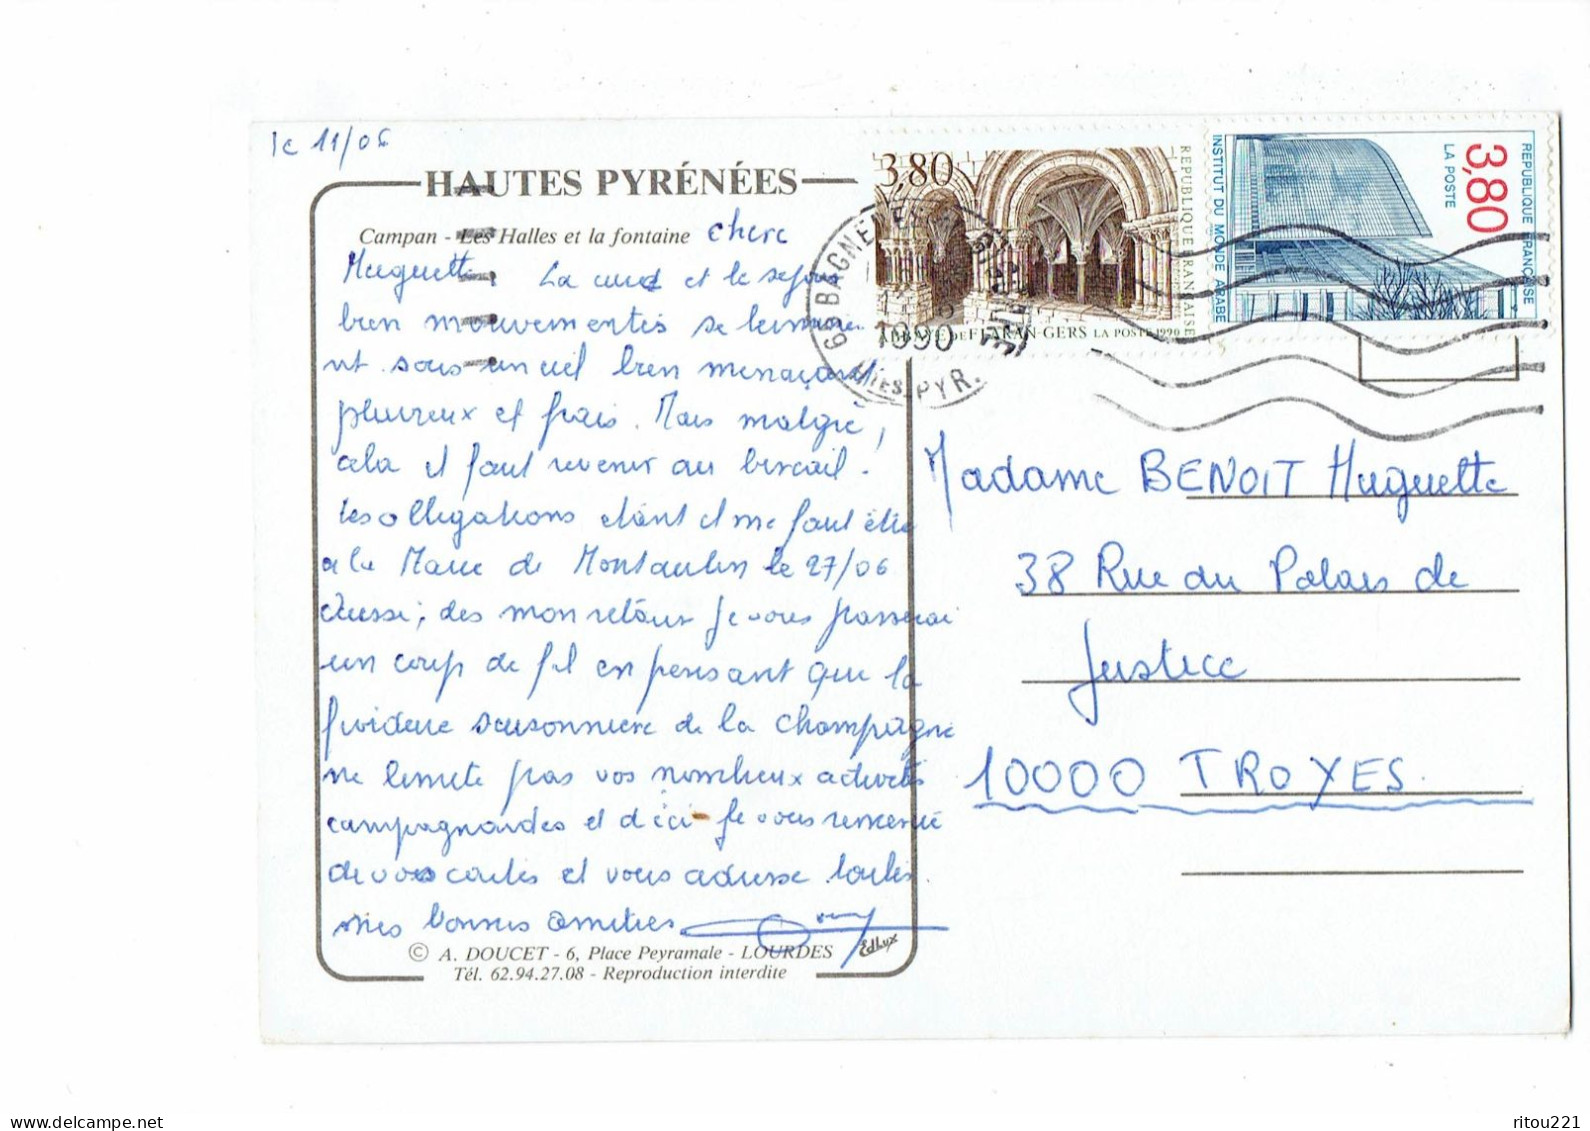 le 11/06
HAUTES PYRÉNÉES
Campan - Les Halles et la fontaine
Chere
Huguette La cure et le sejour
bien mouvementés se termine
nt sous un ciel bien menaçant
pluvieux et frais. Mais malgré
cela il faut revenir au bercail.
Les obligations étant il me faut être
a la Mairie de Montaulin le 27/06
Aussi, des mon retour je vous passerai
un coup de fil en pensant que la
froideur saisonniere de la champagne
ne limite pas vos nombreux activités
campagnardes et d'ici je vous remercie
de vos cartes et vous adresse toutes
mes bonnes amitiés
© A. DOUCET - 6, Place Peyramale - LOURDES
Tél. 62.94.27.08 - Reproduction interdite
EdLux
3,80
REPUBLIQUE FRANÇAISE
ABBAYE DE FLARAN-GERS LA POSTE 1990
65 BAGNERES
1990
HTES PYR.
REPUBLIQUE FRANÇAISE
LA POSTE
3,80
INSTITUT DU MONDE ARABE
Madame BENOIT Huguette
38 Rue du Palais de
Justice
10000 TROYES
ritou221